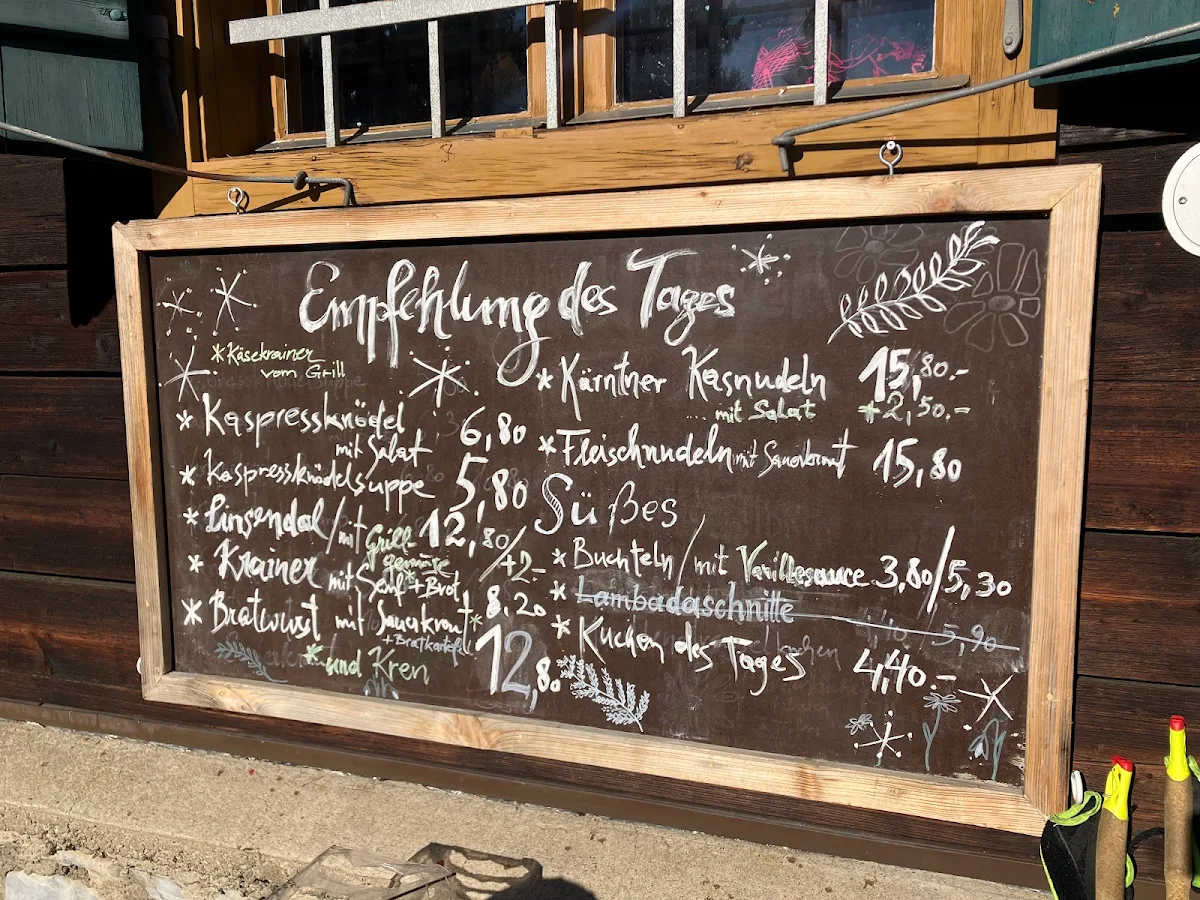 Empfehlung des Tages
*Käsekrainer
vom Grill
* Kaspressknödel
mit Salat 6,80
* Kaspressknödelsuppe 5,80
* Linsendal / mit Grill-
gemüse 12,80 / +2.-
* Krainer mit Senf + Brot 8.20
* Bratwurst mit Sauerkraut*
+ Bratkartoffel 12,80
* und Kren
* Kärntner Kasnudeln 15,80.-
mit Salat +2,50.-
* Fleischnudeln mit Sauerkraut 15,80
Süßes
* Buchteln / mit Vanillesauce 3,80/5,30
* Lambadaschnitte 5,90
* Kuchen des Tages 4,40.-